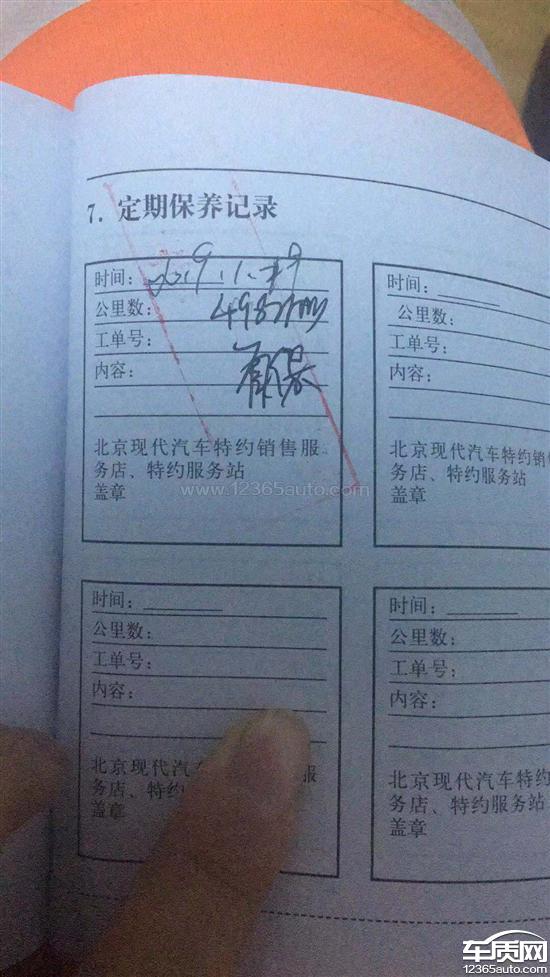 7. 定期保养记录
时间: 2019.1.29
公里数: 4982km
工单号:
内容: 首保
北京现代汽车特约销售服
务店、特约服务站
盖章
时间:
公里数:
工单号:
内容:
北京现代汽车特约销
务店、特约服务站
盖章
时间:
公里数:
工单号:
内容:
北京现代汽车 服
务店、特约服
盖章
时间:
公里数:
工单号:
内容:
北京现代汽车特约
务店、特约服务站
盖章
www.12365auto.com
车质网
12365auto.com